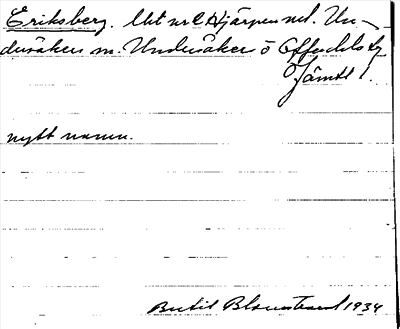 Eriksberg. Ukt nr 2 Hjärpen ned. Un-
dersåkers sn. Undersåker ö Offerdals tg
Jämtl l.
nytt namn.
Bertil Blomstrand 1934